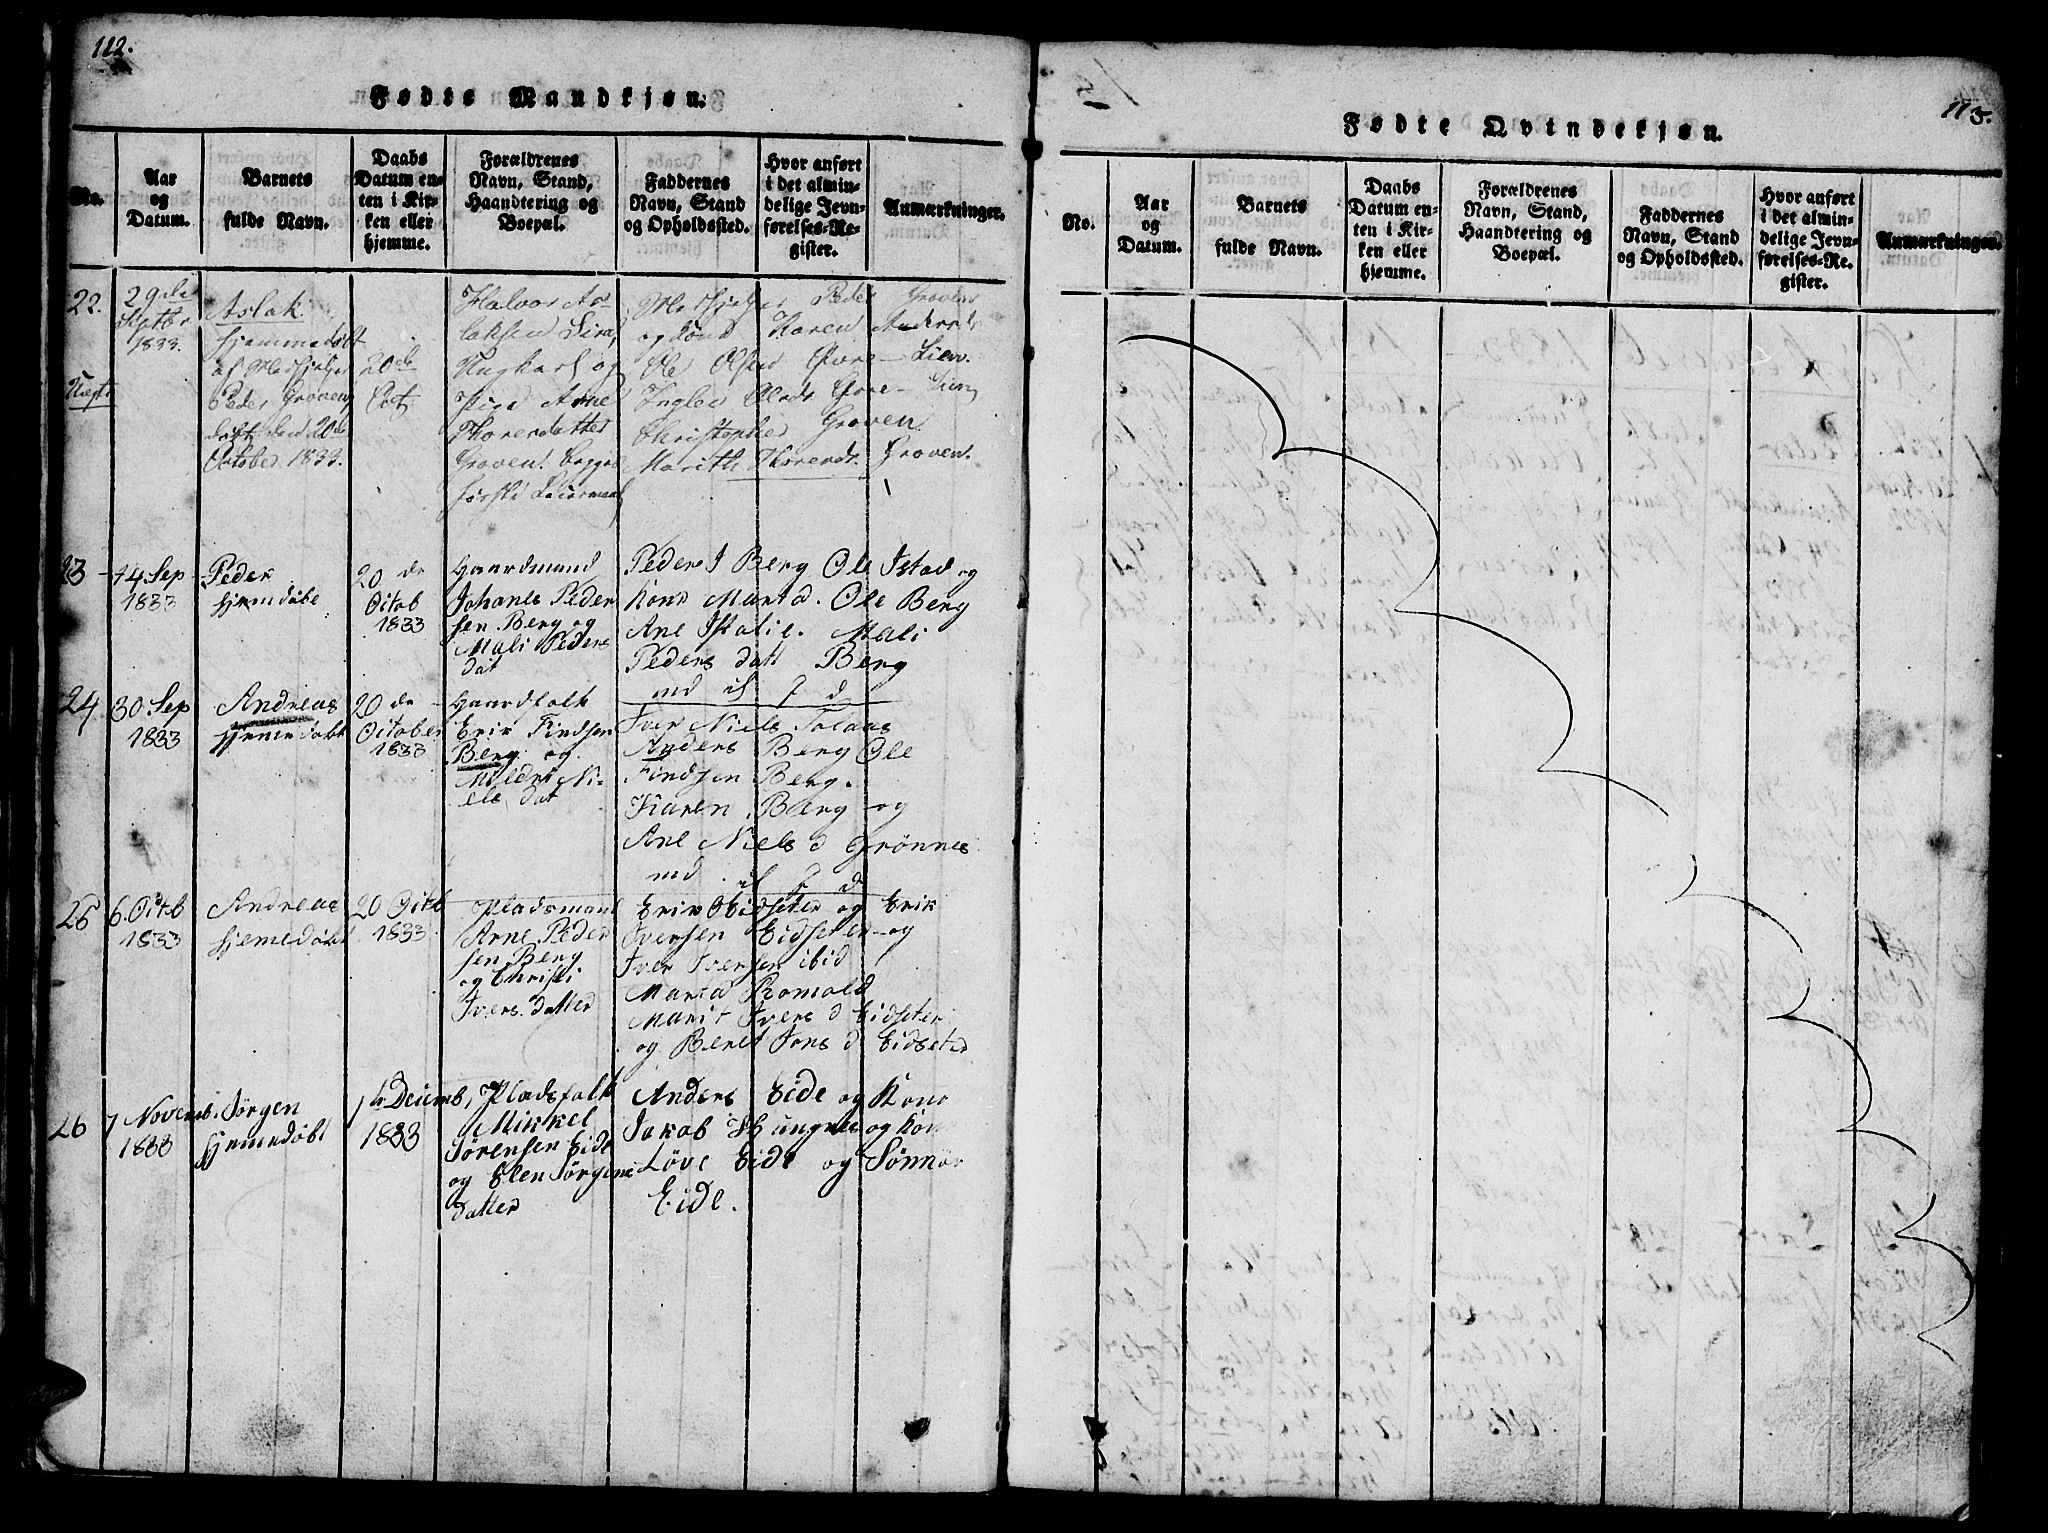 112.
Fødte Mandkjøn.
No.
Aar
og
Datum.
Barnets
fulde Navn.
Daabs
Datum en-
ten i Kir-
ken eller
hjemme.
Forældrenes
Navn, Stand,
Haandtering og
Boepæl.
Faddernes
Navn, Stand
og Opholdssted.
Hvor anført
i det almin-
delige Jevn-
førelses-Re-
gister.
Anmærkninger.
22.
29de
Septbr
1833.
Aslak.
hjemmedøbt
af
Peder Groven,
døbt den 20de
October 1833.
20de
Oct
Halvor As-
laksen Lira,
Ungkarl og
Pige Arne
Thoresdatter
Groven.
Peder Groven
og Kone Karen Andersdr
Ole Olsen Øvre-Lien.
Øvre-Lien
Christopher Groven
Marith Thoresdr. Groven.
23
14 Sep
1833
Peder
hjemdøbt
20de
Octob
1833
Gaardmand
Johanes Peder
sen. Berg og
Mali Peders
dat
Peder J Berg Ole Istad og
Kone Marta. Ole Berg
Ane Mali
Peders datt Berg
24
30 Sep
1833
Andreas
hjemedøbt
20de
October
1833
Gaardfolk
Erik Findsen
Berg og
Ni-
els dat
Iver Niels
Anders Berg Ole
Findsen Berg.
Karen Berg og
Ane Niels d Grønnes
25
6 Octb
1833
Andreas
hjemedøbt
20 Octb
1833
Pladsmand
Arne Peder
sen Berg
og Christi
Ivers datter
Erik Eidseter og Erik
Iversen Eidseter og
Iver Iversen ibid
Marta
Marit Ivers d Eidseter
og Beret Jons d Eidseter
26
7 Novemb.
1833
Jørgen
hjemedøbt
1te Decemb,
1833
Pladsfolk
Mikkel
Sørensen Eide
og Elen Jørgens
datter
Anders Eide og Kone
Jakob og Kon
Eide og
Eide.
113.
Fødte Qvindekjøn.
No.
Aar
og
Datum.
Barnets
fulde Navn.
Daabs
Datum en-
ten i Kir-
ken eller
hjemme.
Forældrenes
Navn, Stand,
Haandtering og
Boepæl.
Faddernes
Navn, Stand
og Opholdssted.
Hvor anført
i det almin-
delige Jevn-
førelses-Re-
gister.
Anmærkninger.